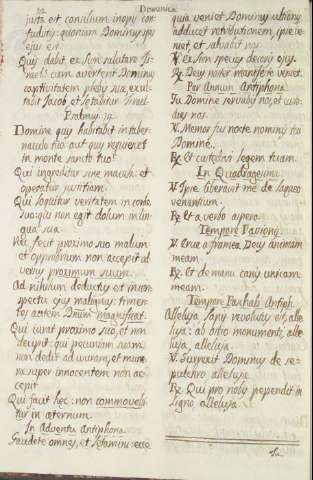 Dominica
juta et consilium inopy con-
tudity: quoniam Dominy spy
ejy est.
Quiy dabit ex Sion salutare Is-
rael: cum avertent Dominy
captivitatem pleby sua, exul-
tabit Jacob, et letabitur Israel.
Psalmy 14.
Domine quiy habitabit in taber-
naculo tuo: aut quiy requiescet
in monte sancto tuo?
Qui ingreditur sine macula: et
operatur justitiam.
Qui loquitur veritatem in corde
suo: qui non egit dolum in lin-
gua sua.
Nec fecit proximo suo malum:
et opprobrium non accepit ad-
versy proximum suum.
Ad nihilum deducty est in con-
spectu ejy maligny: timen-
tes autem Dnum magnificat.
Qui jurat proximo suo, et non
decipit: qui pecuniam suam
non dedit ad usuram, et mune-
ra super innocentem non ac-
cepit.
Qui facit hec: non commovebi-
tur in æternum.
In Adventu Antiphona
Gaudete omnes, et letamini: ecce
quia veniet Dominy ultiony
adducet retributionem, ipse ve-
niet, et salvabit nos.
V. Ex Sion speciy decory ejy.
R. Dey noster manifeste veniet.
Per Annum Antiphona
Tu Domine servaby noy, et custo-
diey nos.
V. Memor fui nocte nominiy tui
Domine.
R. Et custodivi legem tuam.
In Quadragesima
V. Ipse liberavit me de laqueo
venantium.
R. Et a verbo aspero.
Tempore Passioniy.
V. Erue a framea Dey animam
meam.
R. Et de manu caniy unicam
meam.
Tempore Paschali Antiph.
Alleluja lapiy revoluty est, alle-
luja: ab ostio monumenti, alle-
luja, alleluja.
V. Surrexit Dominy de se-
pulchro alleluja.
R. Qui pro nobiy pependit in
ligno alleluja.